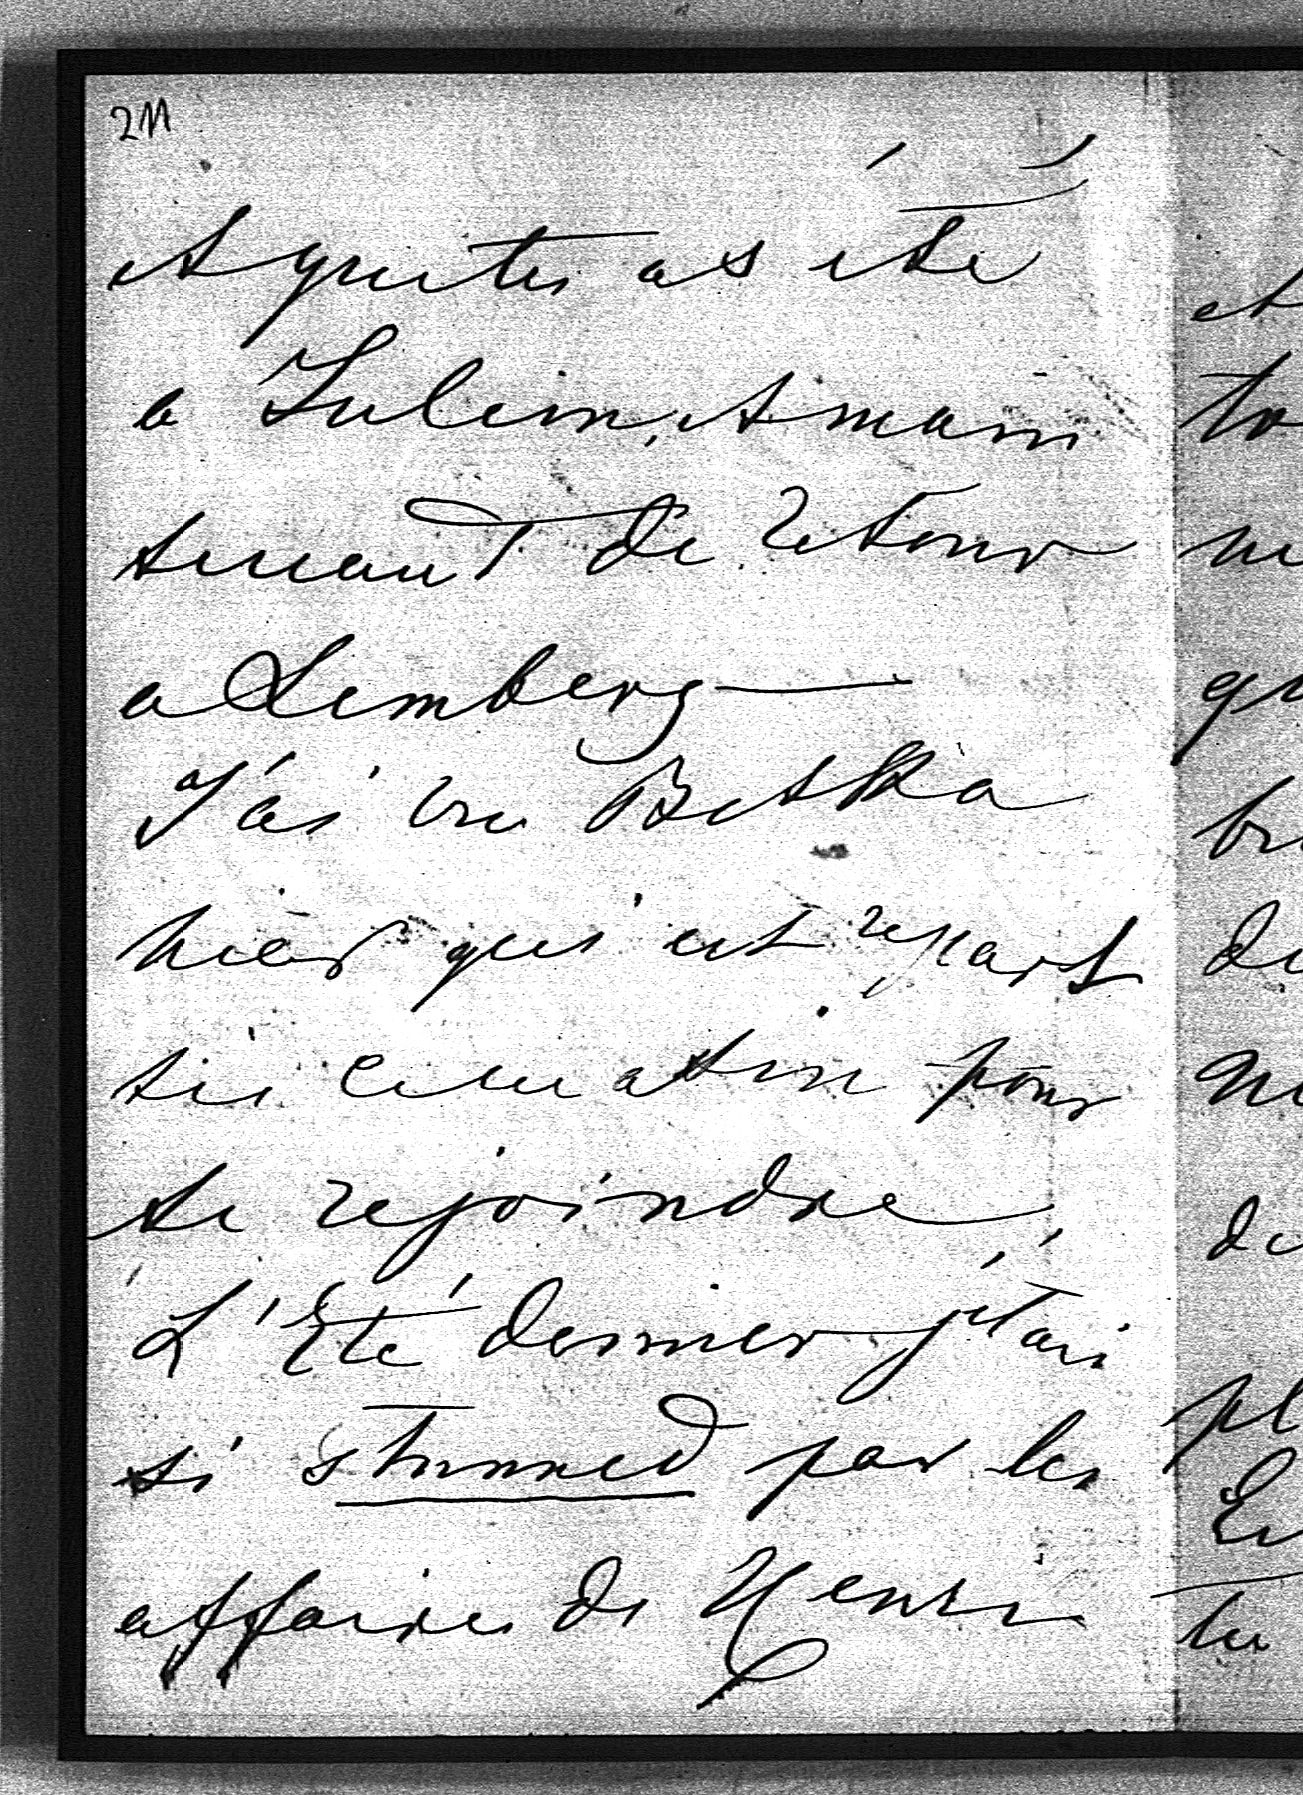 211
et que tu as été
a Julein, et main
tenant de retour
a Lemberg —
J'ai vu Betka
hier qui est repart
tie ce matin pour
te rejoindre,
L'Eté dernier j'étais
si stunned par les
affaires de Henri
et
to
qu
br
de
de
pl